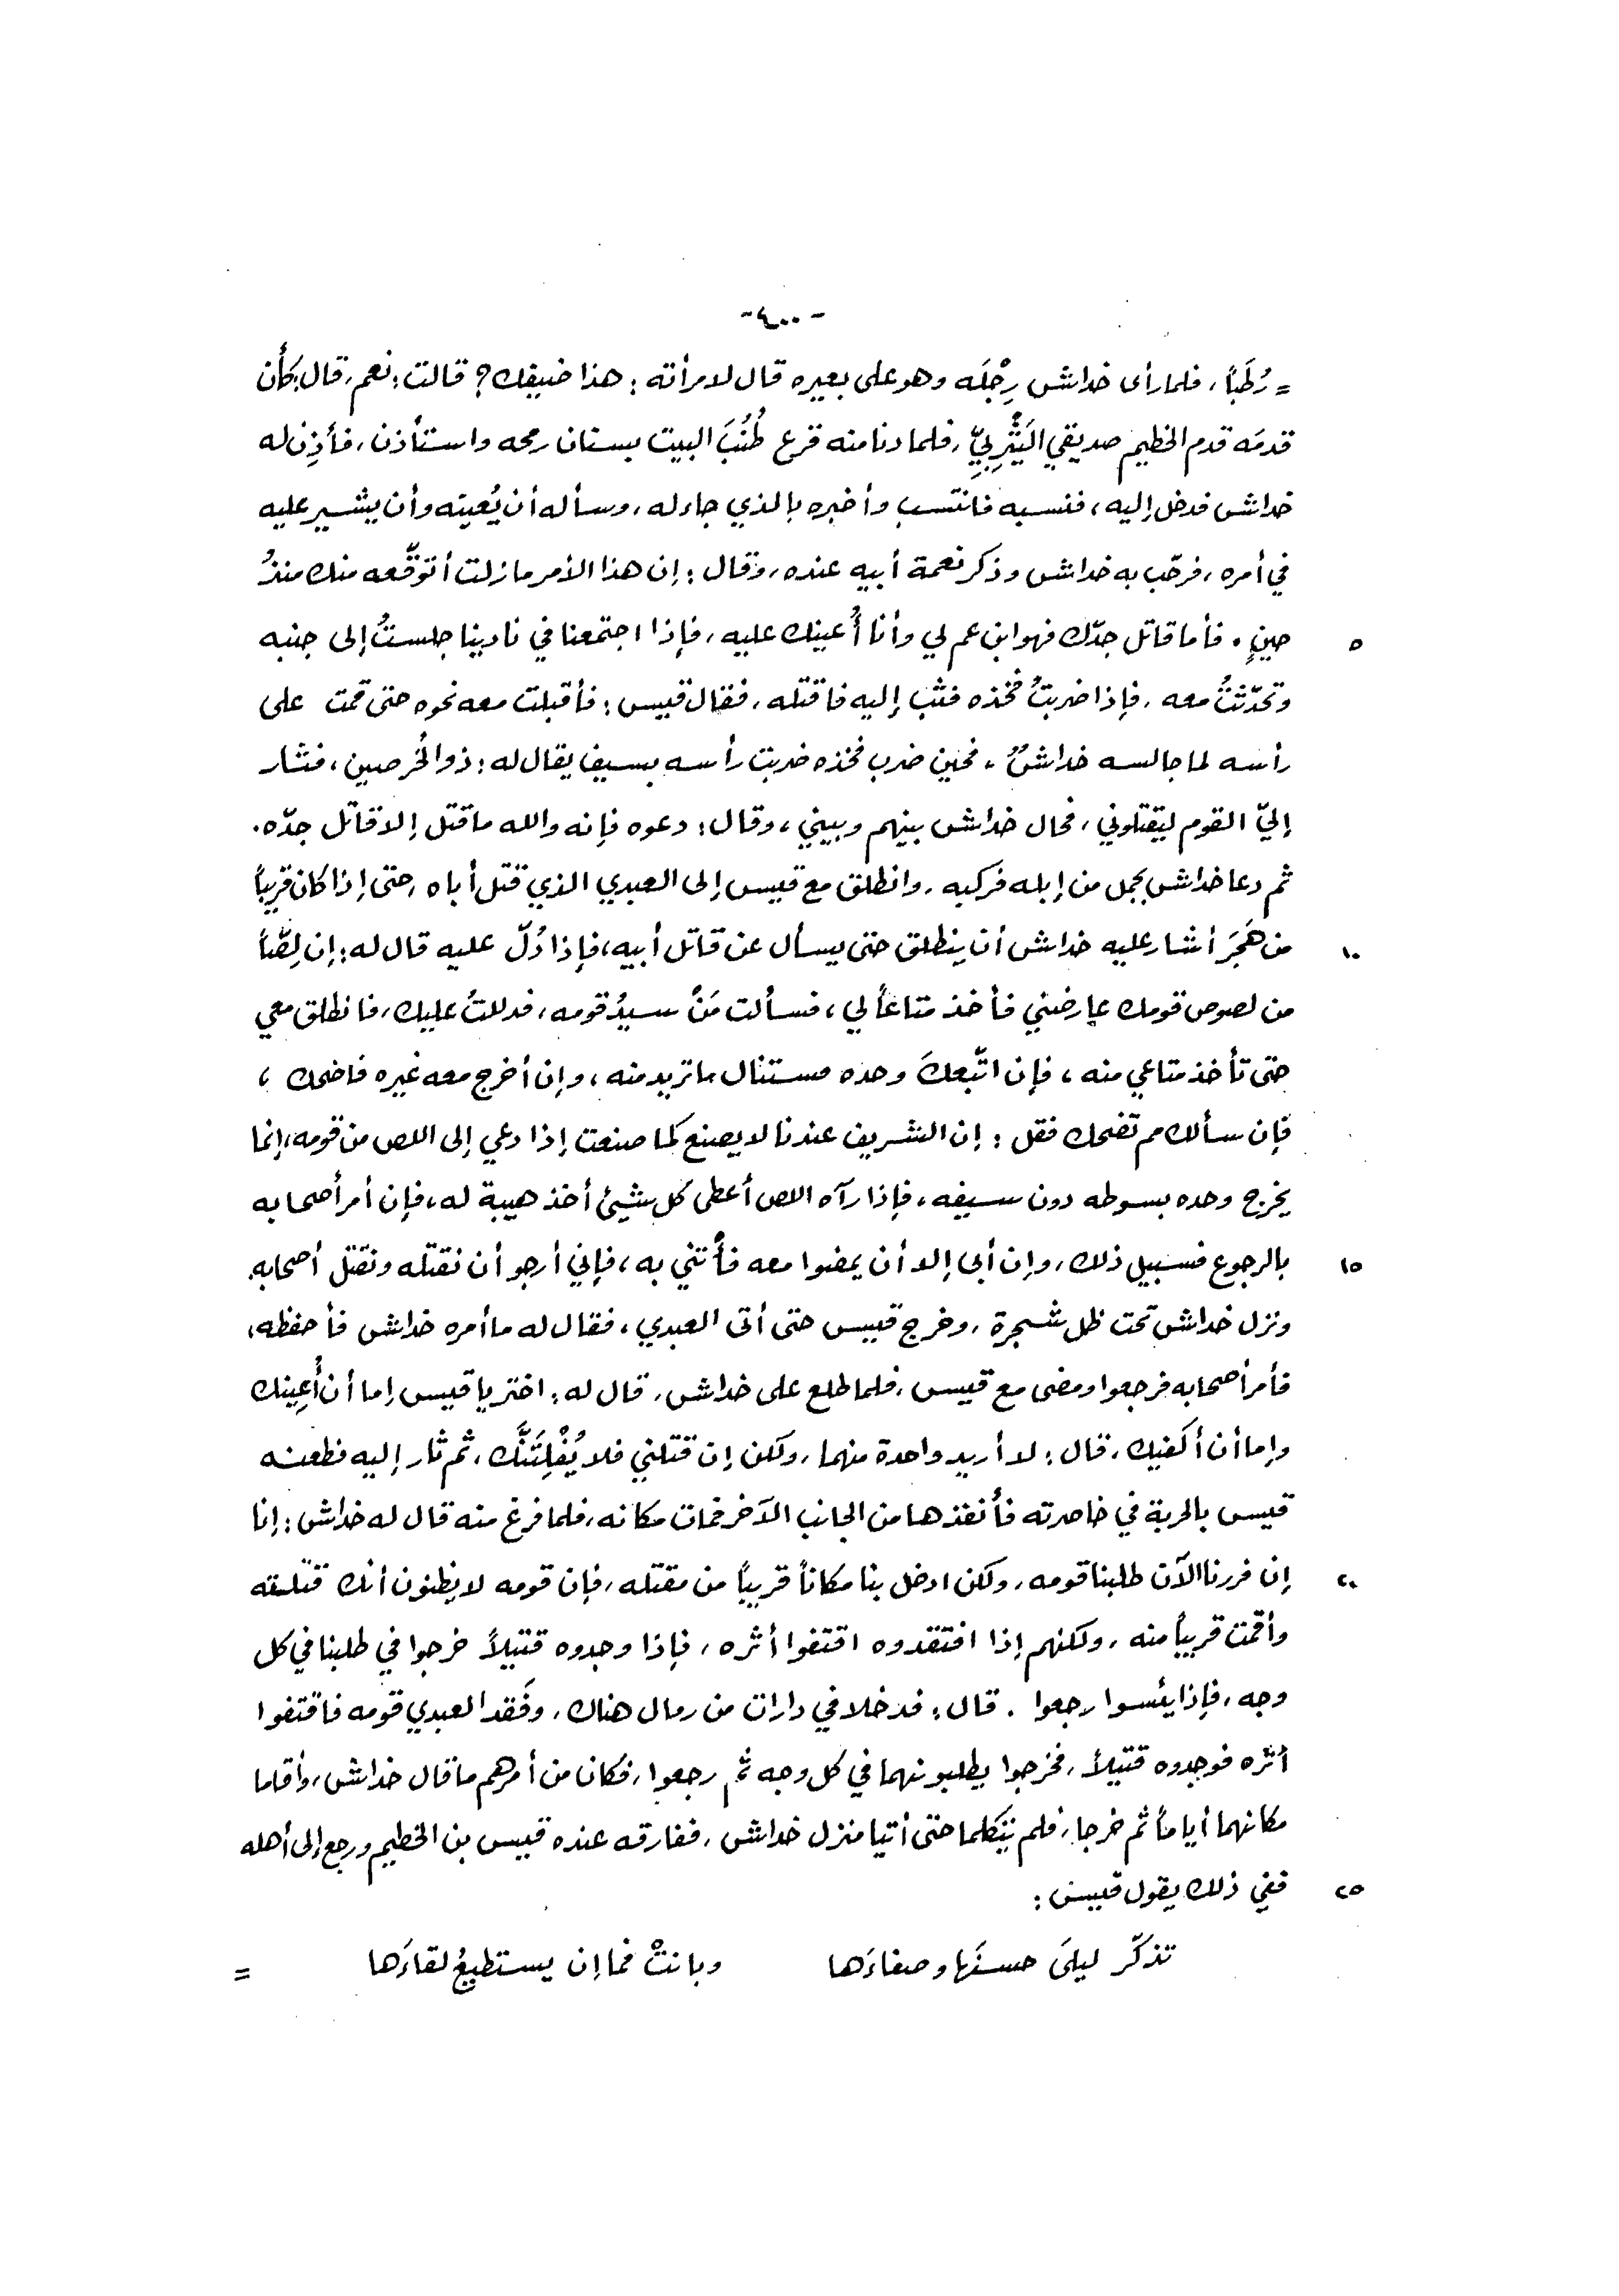 - ٤٠٠ -
= رُطَباً، فلما رأى خداش رِجْلَه وهو على بعيره قال لامرأته : هذا ضيفك؟ قالت : نعم، قال : كأن
قدمَه قدم الخطيم صديقي اليَثْرِبيِّ، فلما دنا منه قرع طُنُبَ البيت بسنان رمحه واستأذن، فأذِن له
خداش فدخل إليه، فنسبه فانتسب وأخبره بالذي جاء له، وسأله أن يُعينه وأن يشير عليه
في أمره، فرحّب به خداش وذكر نعمة أبيه عنده، وقال : إن هذا الأمر ما زلت أتوقّعه منك منذُ
٥ حينٍ . فأما قاتل جدّك فهو ابن عم لي وأنا أُعينك عليه، فإذا اجتمعنا في نادينا جلستُ إلى جنبه
وتحدّثتُ معه، فإذا ضربتُ فخذه فثب إليه فاقتله، فقال قيس : فأقبلت معه نحوه حتى قمت على
رأسه لما جالسه خداشٌ، فحين ضرب فخذه ضربت رأسه بسيف يقال له : ذو الخُرصين، فثار
إليّ القوم ليقتلوني، فحال خداش بينهم وبيني، وقال : دعوه فإنه والله ما قتل إلا قاتل جدّه .
ثم دعا خداش بجمل من إبله فركبه، وانطلق مع قيس إلى العبدي الذي قتل أباه، حتى إذا كان قريباً
١٠ من هَجَرَ أشار عليه خداش أن ينطلق حتى يسأل عن قاتل أبيه، فإذا دُلّ عليه قال له : إن لِصّاً
من لصوص قومك عارضني فأخذ متاعاً لي، فسألت مَنْ سيدُ قومه، فدللتُ عليك، فانطلق معي
حتى تأخذ متاعي منه، فإن اتّبعكَ وحده فستنال ما تريد منه، وإن أخرج معه غيره فاضحك،
فإن سألك مم تضحك فقل : إن الشريف عندنا لا يصنع كما صنعت إذا دعي إلى اللص من قومه، إنما
يخرج وحده بسوطه دون سيفه، فإذا رآه اللص أعطى كل شيئ أخذ هيبة له، فإن أمر أصحابه
١٥ بالرجوع فسبيل ذلك، وإن أبى إلا أن يمضوا معه فأْتني به، فإني أرجو أن نقتله ونقتل أصحابه.
ونزل خداش تحت ظل شجرة، وخرج قيس حتى أتى العبدي، فقال له ما أمره خداش فأحفظه،
فأمر أصحابه فرجعوا ومضى مع قيس، فلما طلع على خداش، قال له : اختر يا قيس إما أن أُعِينك
وإما أن أكفيك، قال : لا أريد واحدة منهما، ولكن إن قتلني فلا يُفْلِتَنَّك، ثم ثار إليه فطعنه
قيس بالحربة في خاصرته فأنفذها من الجانب الآخر فمات مكانه، فلما فرغ منه قال له خداش : إنا
٢٠ إن فررنا الآن طلبنا قومه، ولكن ادخل بنا مكاناً قريباً من مقتله، فإن قومه لا يظنون أنك قتلته
وأقمت قريباً منه، ولكنهم إذا افتقدوه اقتفوا أثره، فإذا وجدوه قتيلاً خرجوا في طلبنا في كل
وجه، فإذا يئسوا رجعوا . قال : فدخلا في دارات من رمال هناك، وفَقد العبدي قومه فاقتفوا
أثره فوجدوه قتيلاً، فخرجوا يطلبونهما في كل وجه ثم رجعوا، فكان من أمرهم ما قال خداش، وأقاما
مكانهما أياماً ثم خرجا، فلم يتكلما حتى أتيا منزل خداش، ففارقه عنده قيس بن الخطيم ورجع إلى أهله
٢٥ ففي ذلك يقول قيس :
تذكّر ليلَى حسنَها وصفاءَها وبانتْ فما إن يستطيعُ لقاءَها =